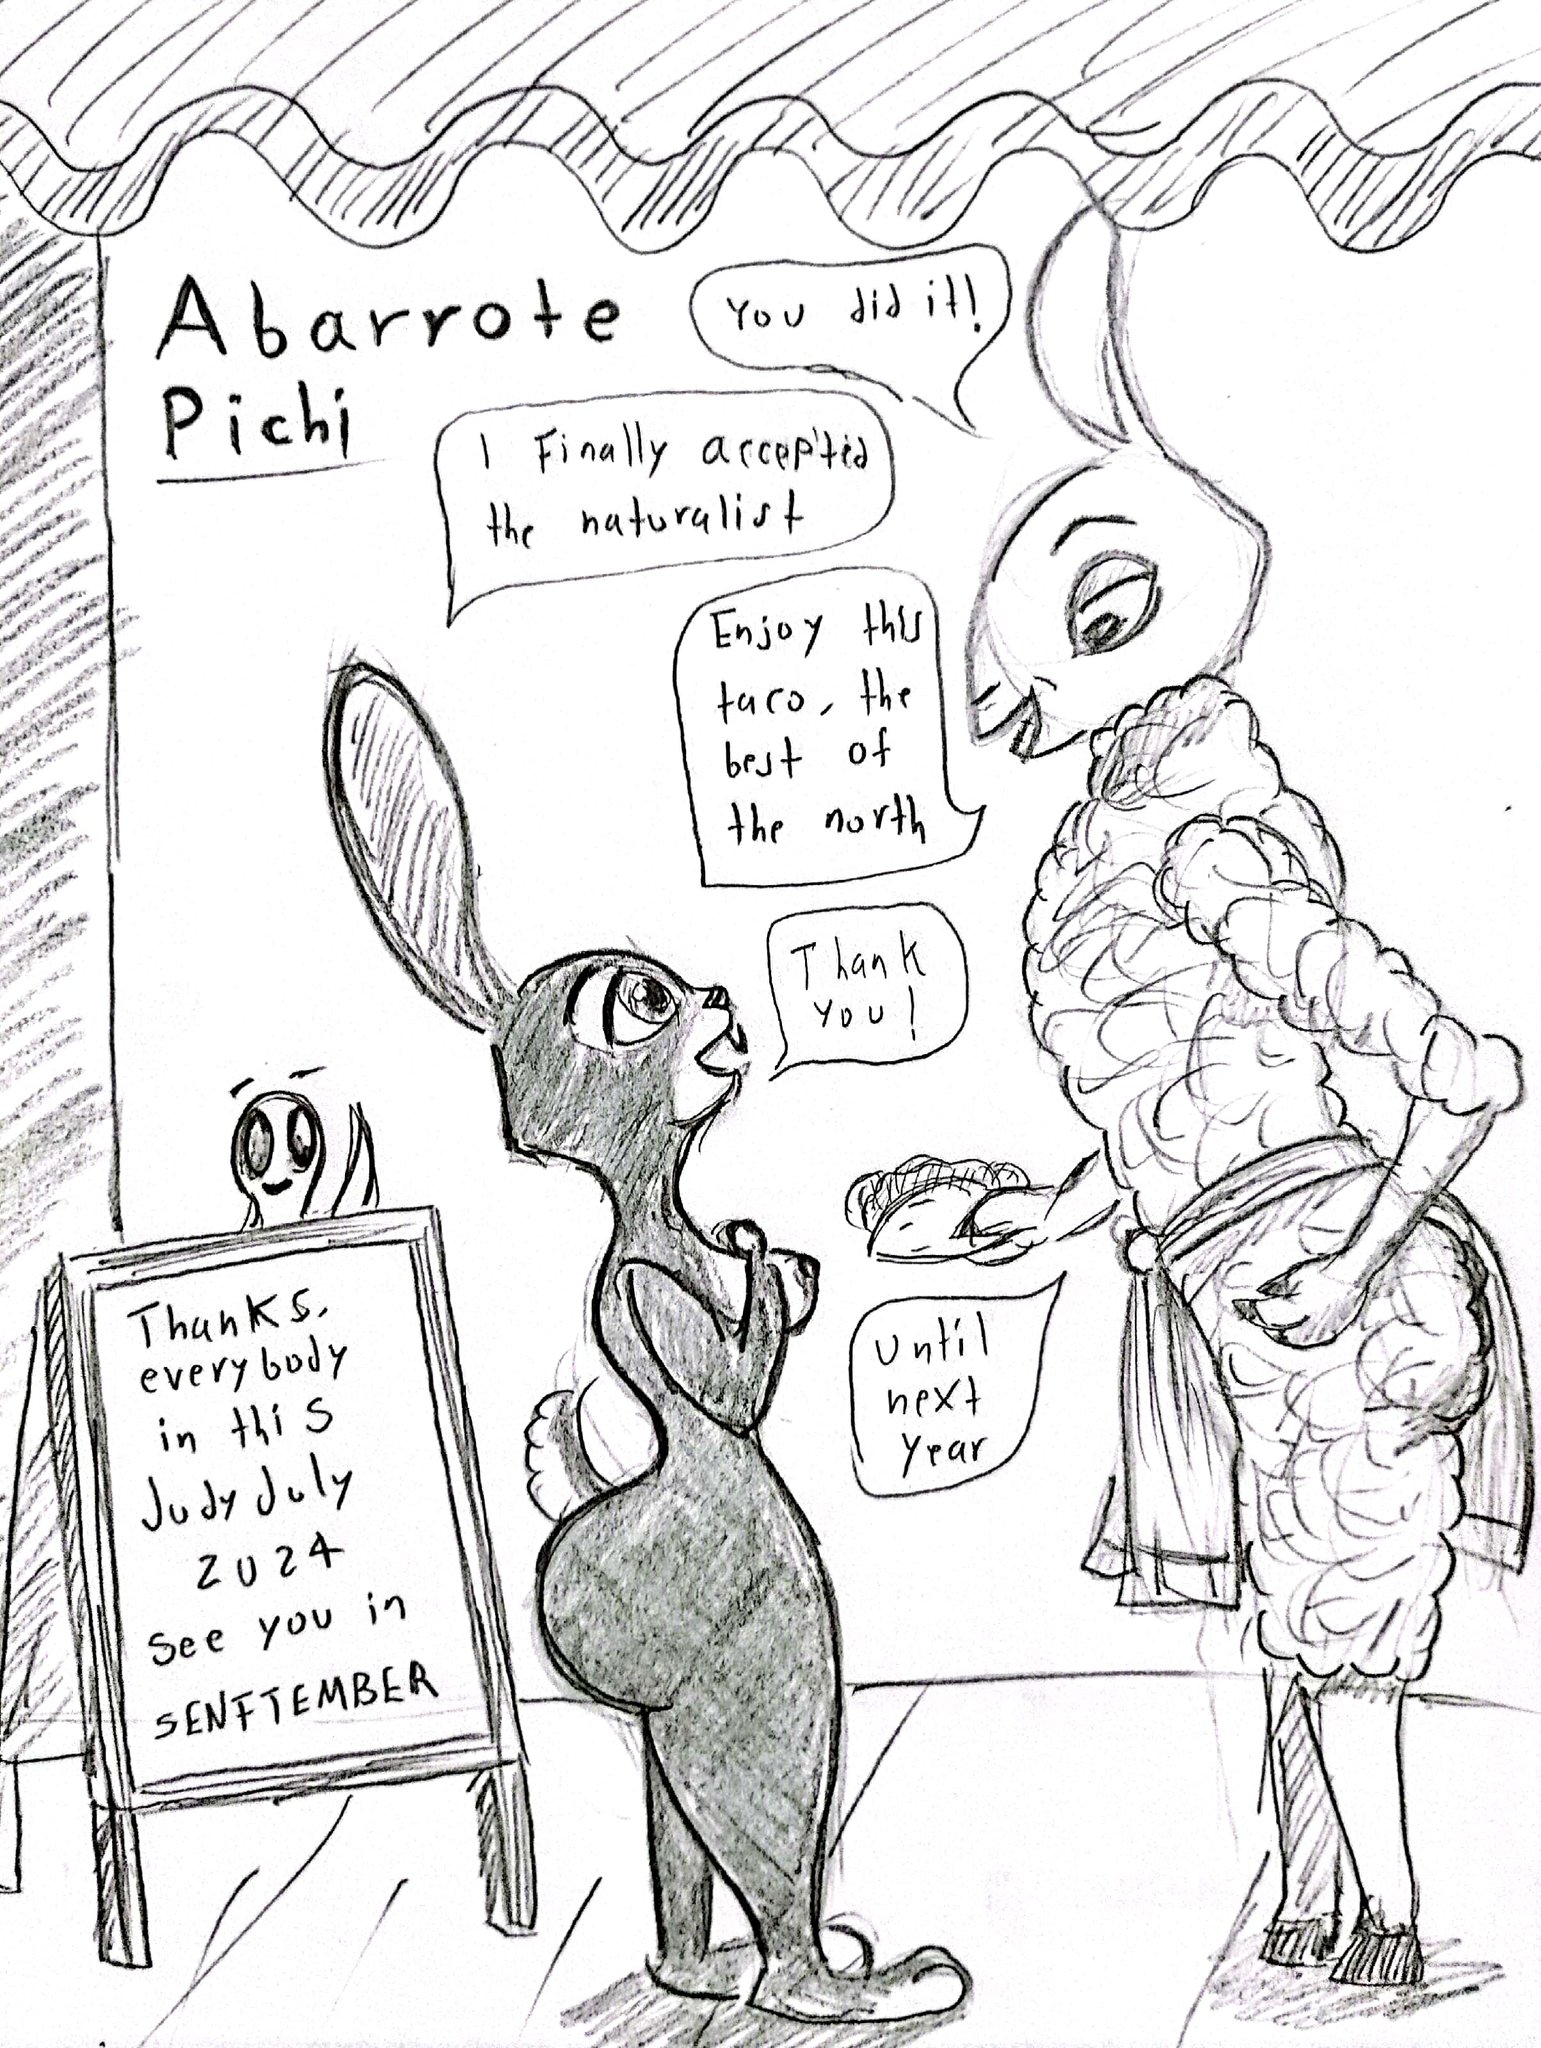 Abarrote
Pichi
You did it!
I Finally accepted
the naturalist
Enjoy this
taco, the
best of
the north
Thank
you!
Until
next
year
Thanks,
everybody
in this
Judy July
2024
See you in
SENFTEMBER